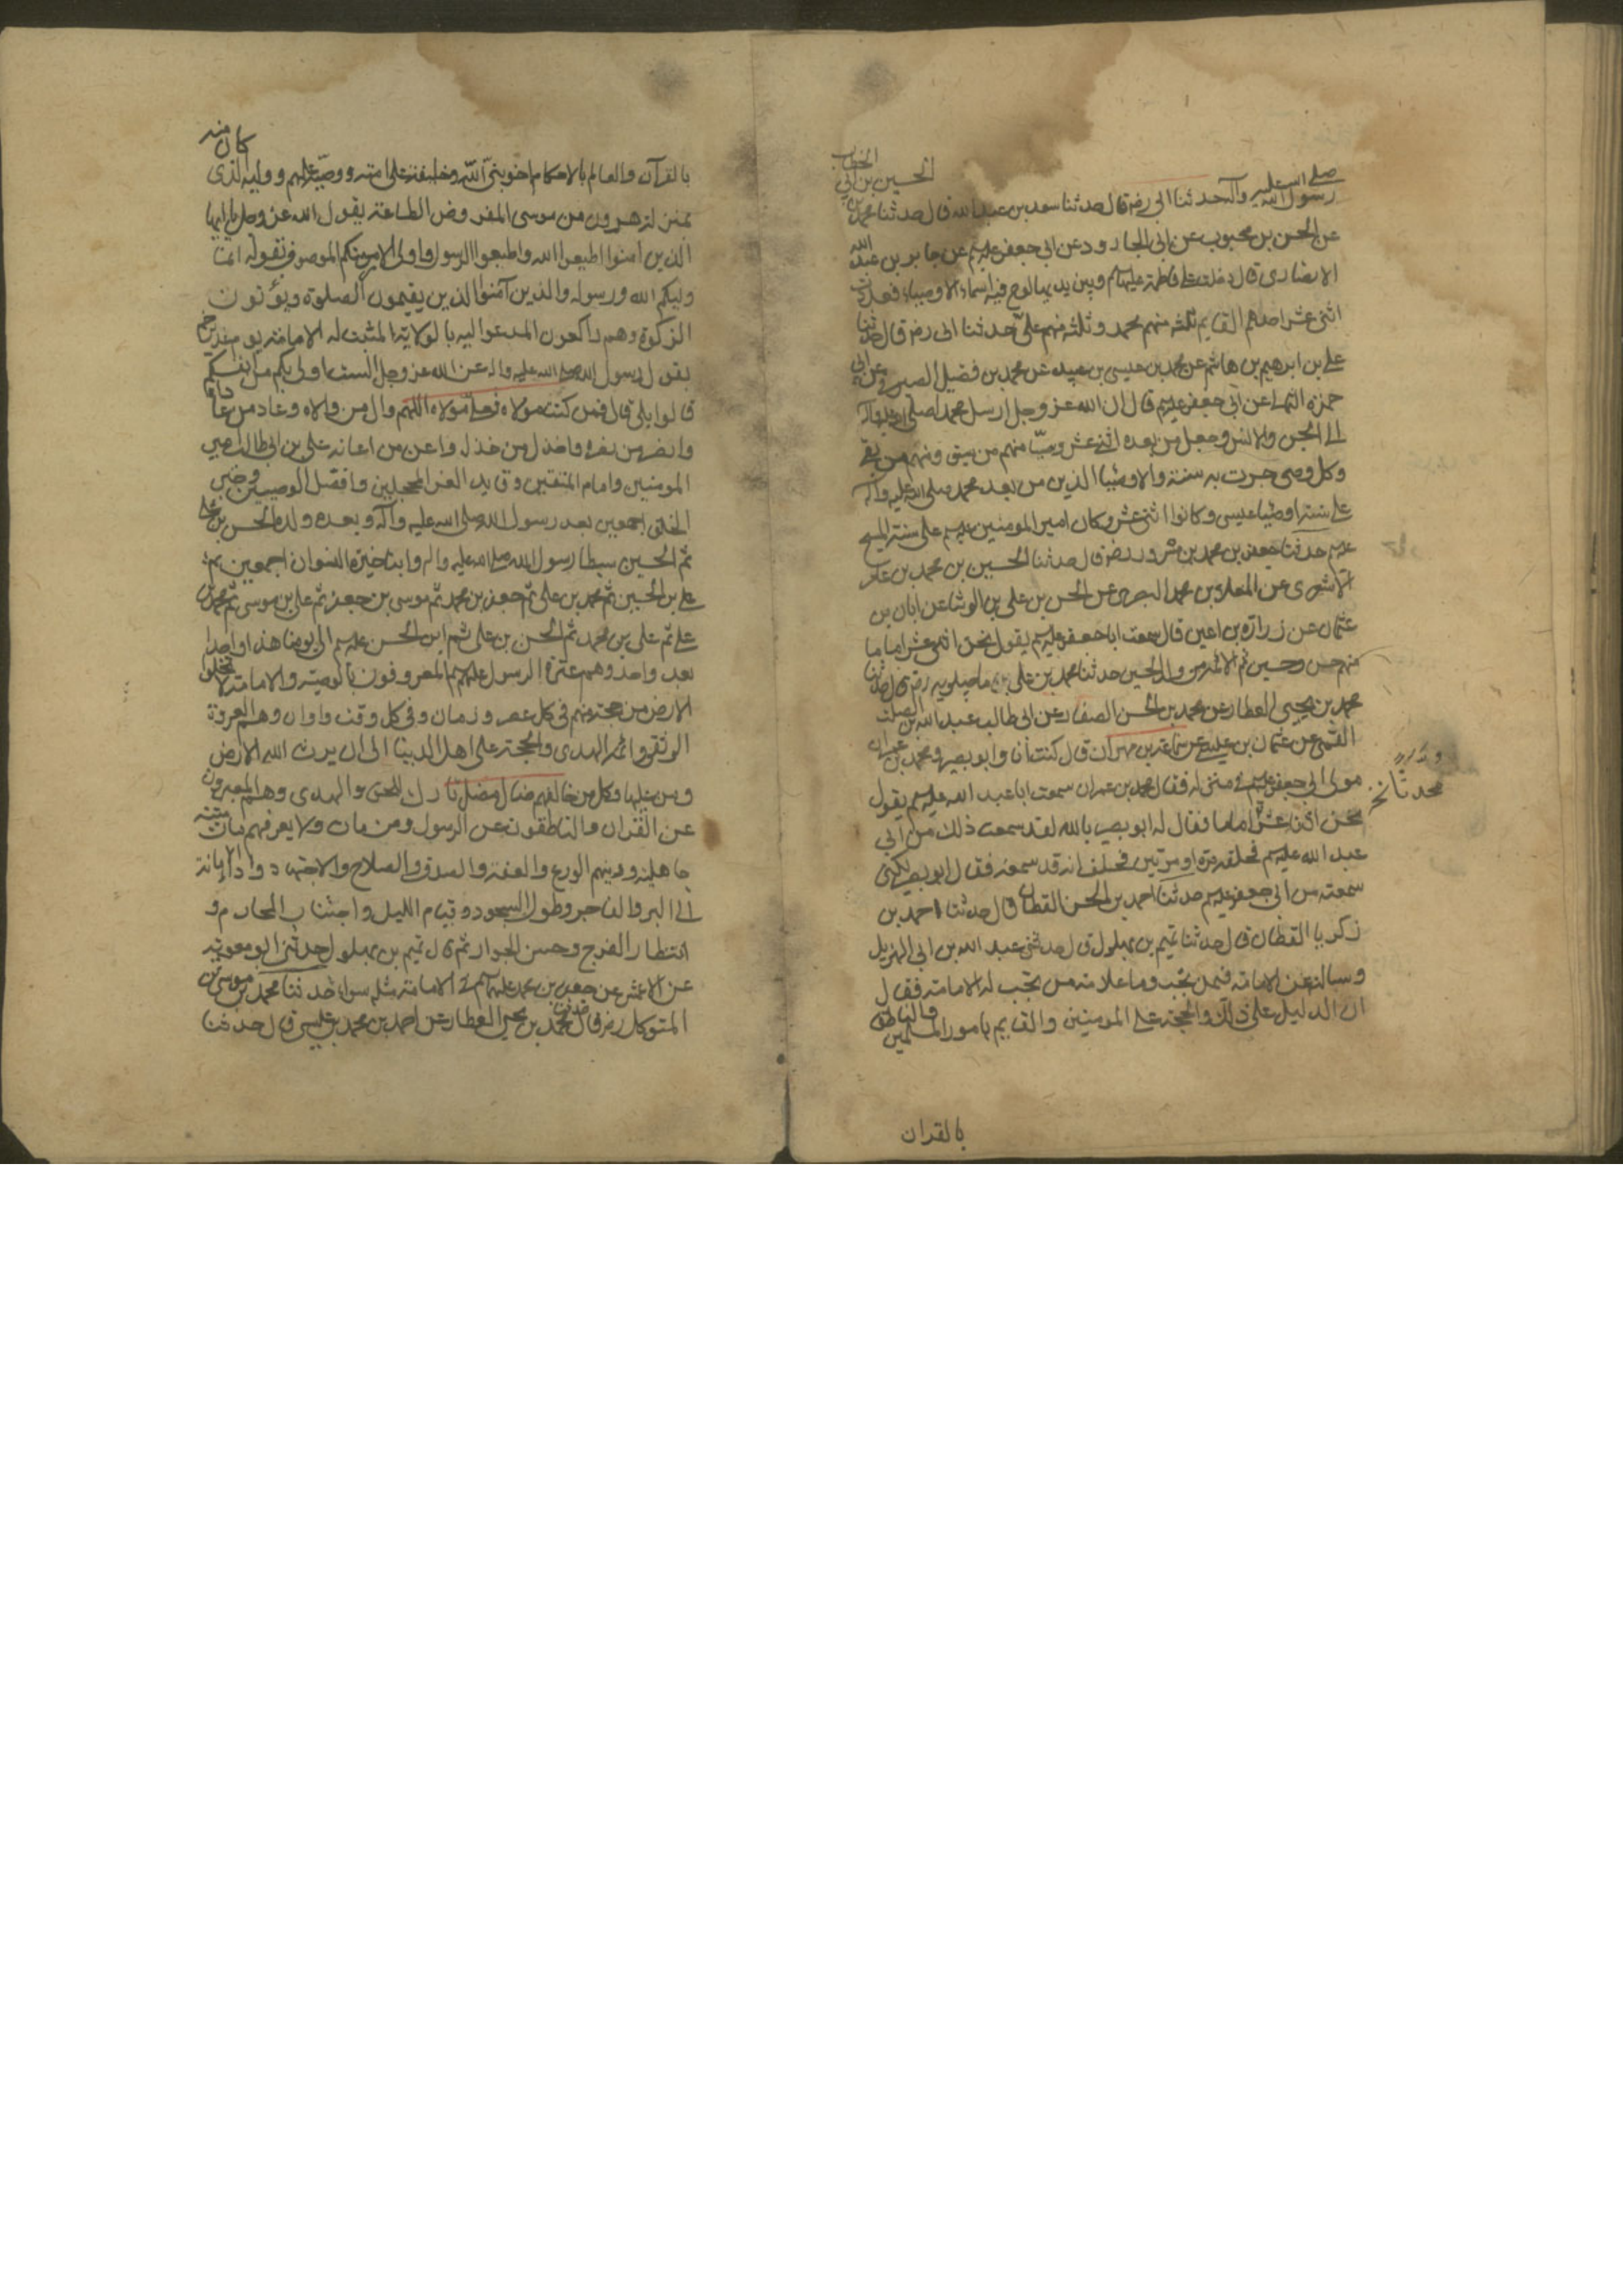 رسول الله صلى الله عليه وآله حدثنا ابى رضه قال حدثنا سعد بن عبد الله قال حدثنا محمد بن الحسين بن ابي الخطاب
عن الحسن بن محبوب عن ابى الجارود عن ابى جعفر عليهم عن جابر بن عبد الله
الانصارى قال دخلت على فاطمة عليها السلام وبين يديها لوح فيه اسماء الاوصياء فعددت
اثنى عشر احدهم القايم ثلثه منهم محمد وثلثه منهم على حدثنا ابى رضه قال حدثنا
على بن ابرهيم بن هاشم عن محمد بن عيسى بن عبيد عن محمد بن فضيل الصيرفى عن ابى
حمزه الثمالى عن ابى جعفر عليهم قال ان الله عز وجل ارسل محمدا صلى الله عليه وآله
الى الجن والانس وجعل من بعده اثنى عشر وصيا منهم من سبق ومنهم من بقى
وكل وصى جرت به سنة والاوصيا الذين من بعد محمد صلى الله عليه وآله
على سنة اوصيا عيسى وكانوا اثنى عشر وكان امير المومنين عليهم على سنة المسيح
عليهم حدثنا جعفر بن محمد بن مسرور رضه قال حدثنا الحسين بن محمد بن عامر
الاشعرى عن المعلى بن محمد البصرى عن الحسن بن على بن الوشا عن ابان بن
عثمان عن زرارة بن اعين قال سمعت ابا جعفر عليهم يقول نحن اثنى عشر اماما
منهم حسن وحسين ثم الائمه من ولد الحسين حدثنا محمد بن على ماجيلويه رضه قال حدثنا
محمد بن يحيى العطار عن محمد بن الحسن الصفار عن ابى طالب عبد الله بن الصلت
القمى عن عثمان بن عيسى عن سماعة بن مهران قال كنت انا وابو بصير ومحمد بن عمران
مولى ابى جعفر عليهم فى منزله فقال محمد بن عمران سمعت ابا عبد الله عليهم يقول
محدثا نخ
نحن اثنا عشر اماما فقال له ابو بصير بالله لقد سمعت ذلك من ابى
عبد الله عليهم فحلفه مرة او مرتين فحلف انه قد سمعه فقال ابو بصير لكنى
سمعته من ابى جعفر عليهم حدثنا احمد بن الحسن القطان قال حدثنا احمد بن
زكريا القطان قال حدثنا تميم بن بهلول قال حدثنى عبد الله بن ابى الهزيل
وسالته عن الامامة فيمن تجب وما علامة من تجب له الامامة فقال
ان الدليل على ذلك والحجة على المومنين والقايم بامور المسلمين والناطق
بالقران
بالقرآن والعالم بالاحكام اخو نبى الله وخليفته على امته ووصيه عليهم ووليه الذى كان منه
بمنزلة هرون من موسى المفروض الطاعة يقول الله عز وجل يا ايها
الذين امنوا اطيعوا الله واطيعوا الرسول واولى الامر منكم الموصوف بقوله انما
وليكم الله ورسوله والذين آمنوا الذين يقيمون الصلوة ويؤتون
الزكوة وهم راكعون المدعو اليه بالولاية المثبت له الامامة يوم غدير خم
بقول رسول الله صلى الله عليه واله عن الله عز وجل الست اولى بكم من انفسكم
قالوا بلى قال فمن كنت مولاه فعلى مولاه اللهم وال من والاه وعاد من عاداه
وانصر من نصره واخذل من خذله واعن من اعانه على بن ابى طالب امير
المومنين وامام المتقين وقايد الغر المحجلين وافضل الوصيين وخير
الخلق اجمعين بعد رسول الله صلى الله عليه وآله وبعده ولده الحسن بن على
ثم الحسين سبطا رسول الله صلى الله عليه واله وابنا خيرة النسوان اجمعين ثم
على بن الحسين ثم محمد بن على ثم جعفر بن محمد ثم موسى بن جعفر ثم على بن موسى ثم محمد بن
على ثم على بن محمد ثم الحسن بن على ثم ابن الحسن عليهم الى يومنا هذا واحدا
بعد واحد وهم عترة الرسول عليهم المعروفون بالوصية والامامة لا تخلو
الارض من حجة منهم فى كل عصر وزمان وفى كل وقت واوان وهم العروة
الوثقى وائمة الهدى والحجة على اهل الدنيا الى ان يرث الله الارض
ومن عليها وكل من خالفهم ضال مضل تارك للحق والهدى وهم المعبرون
عن القران والناطقون عن الرسول ومن مات ولا يعرفهم مات ميتة
جاهلية ودينهم الورع والعفة والصدق والصلاح والاجتهاد واداء الامانة
الى البر والفاجر وطول السجود وقيام الليل واجتناب المحارم و
انتظار الفرج وحسن الجوار ثم قال تميم بن بهلول حدثنى ابو معوية
عن الاعمش عن جعفر بن محمد عليهم فى الامامة مثله سواء حدثنا محمد بن موسى بن
المتوكل رضه قال حدثنا محمد بن يحيى العطار عن احمد بن محمد بن عيسى قال حدثنا